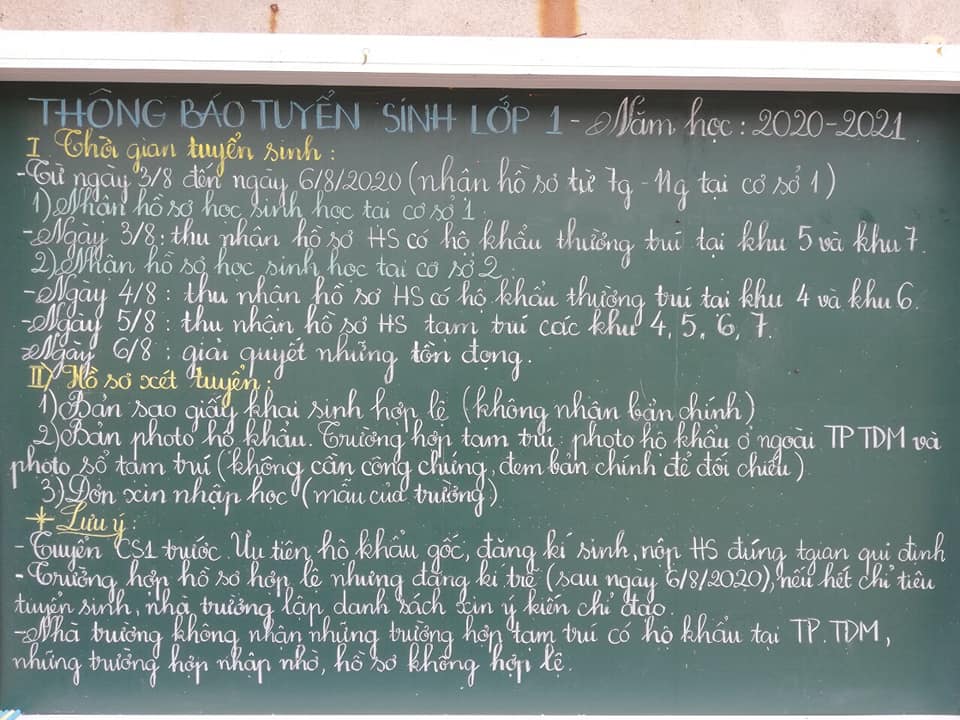 THÔNG BÁO TUYỂN SINH LỚP 1 - Năm học: 2020-2021
I Thời gian tuyển sinh:
-Từ ngày 3/8 đến ngày 6/8/2020 (nhận hồ sơ từ 7g - 11g tại cơ sở 1)
1) Nhận hồ sơ học sinh học tại cơ sở 1.
-Ngày 3/8: thu nhận hồ sơ HS có hộ khẩu thường trú tại khu 5 và khu 7.
2) Nhận hồ sơ học sinh học tại cơ sở 2.
-Ngày 4/8: thu nhận hồ sơ HS có hộ khẩu thường trú tại khu 4 và khu 6.
-Ngày 5/8: thu nhận hồ sơ HS tạm trú các khu 4, 5, 6, 7.
-Ngày 6/8: giải quyết những tồn đọng.
II) Hồ sơ xét tuyển:
1) Bản sao giấy khai sinh hợp lệ (không nhận bản chính)
2) Bản photo hộ khẩu. Trường hợp tạm trú: photo hộ khẩu ở ngoài TP TDM và
photo sổ tạm trú (không cần công chứng, đem bản chính để đối chiếu)
3) Đơn xin nhập học (mẫu của trường)
* Lưu ý:
- Tuyển CS1 trước. Ưu tiên hộ khẩu gốc, đăng kí sinh, nộp HS đúng tgian qui định
- Trường hợp hồ sơ hợp lệ nhưng đăng kí trễ (sau ngày 6/8/2020), nếu hết chỉ tiêu
tuyển sinh, nhà trường lập danh sách xin ý kiến chỉ đạo.
-Nhà trường không nhận những trường hợp tạm trú có hộ khẩu tại TP. TDM,
những trường hợp nhập nhờ, hồ sơ không hợp lệ.